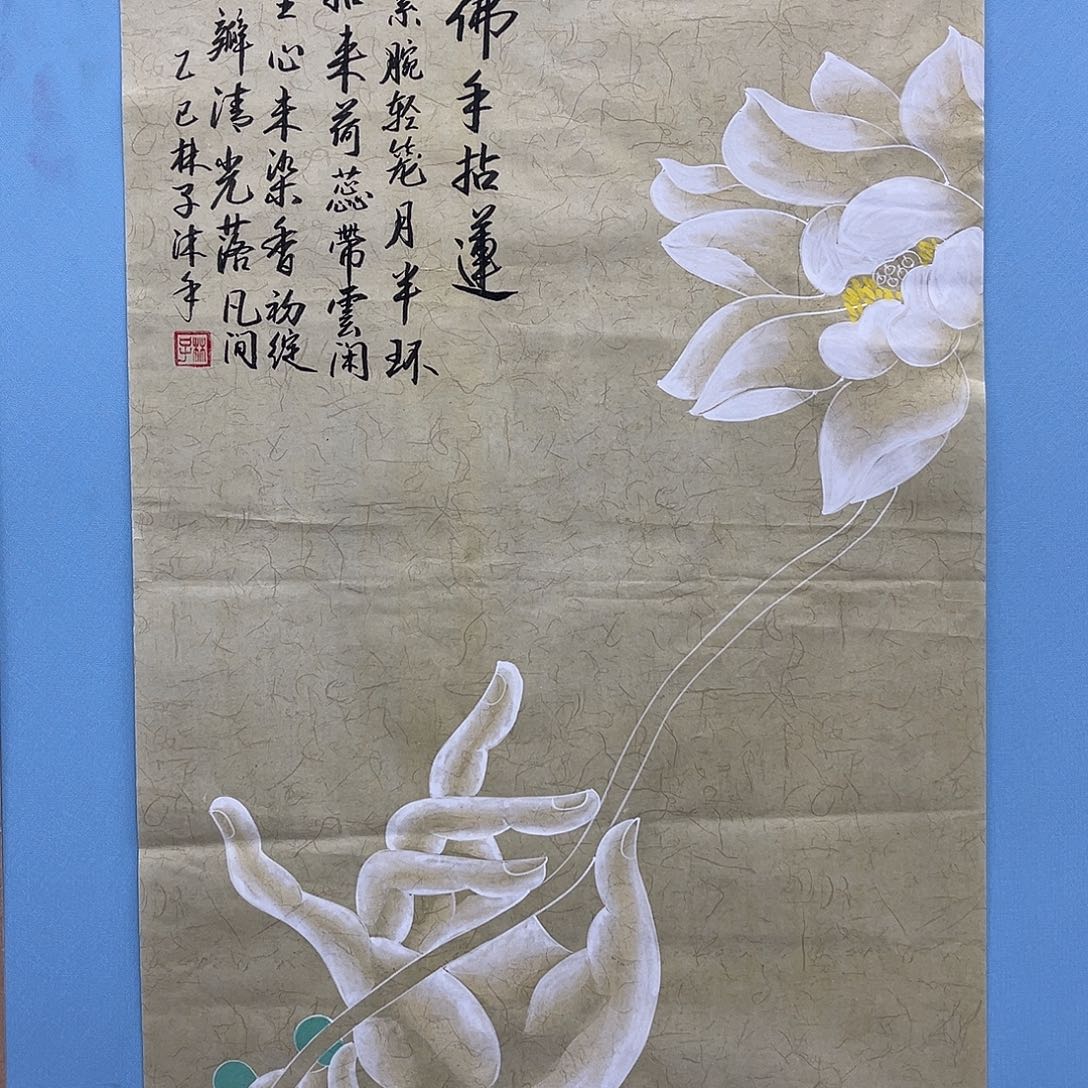 佛手拈蓮
腕轻笼月半环
来荷蕊帶雲闲
心未染香初綻
瓣清光落凡间
乙巳林子沐手
林子